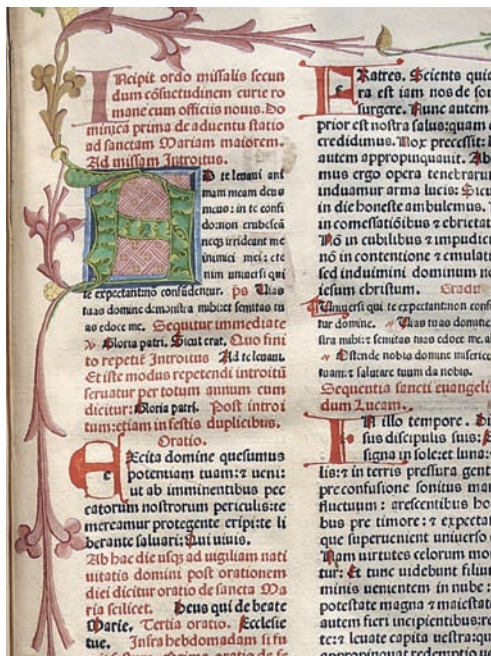 INcipit ordo missalis secun
dum cōsuetudinem curie ro
mane cum officiis nouis. Do
minica prima de aduentu statio
ad sanctam Mariam maiorem.
Ad missam Introitus.
AD te leuaui ani
mam meam deus
meus: in te confi
do: non erubescā
neqꝫ irrideant me
inimici mei: ete
nim uniuersi qui
te expectant: nō confūdentur. ps Uias
tuas domine demonstra mihi: et semitas tu
as edoce me. Sequitur immediate
℣ Gloria patri. Sicut erat. Quo fini
to repetit Introitus Ad te leuaui.
Et iste modus repetendi introitū
seruatur per totum annum cum
dicitur: Gloria patri. Post introi
tum: etiam in festis duplicibus.
Oratio.
EXcita domine quesumus
potentiam tuam: ⁊ ueni:
ut ab imminentibus pec
catorum nostrorum periculis: te
mereamur protegente eripi: te li
berante saluari: Qui uiuis.
Ab hac die usqꝫ ad uigiliam nati
uitatis domini post orationem
diei dicitur oratio de sancta Ma
ria scilicet. Deus qui de beate
Marie. Tertia oratio. Ecclesie
tue. Infra hebdomadam si fu
FRatres. Scients quia
ra est iam nos de som
surgere. Nunc autem
prior est nostra salus: quam
credidimus. Nox precessit:
autem appropinquauit. Ab
mus ergo opera tenebraru
induamur arma lucis: Sicu
in die honeste ambulemus.
in comessatiōibus ⁊ ebrietat
Nō in cubilibus ⁊ impudici
nō in contentione ⁊ emulati
sed induimini dominum
iesum christum. Gradu
Uniuersi qui te expectant: non conf
tur domine. ℣ Uias tuas domine
stra mihi: ⁊ semitas tuas edoce me.
℣ Ostende nobis domine miserico
tuam: ⁊ salutare tuum da nobis.
Sequentia sancti euangeli
dum Lucam.
IN illo tempore. Di
sus discipulis suis:
signa in sole: et luna:
lis: ⁊ in terris pressura gent
pre confusione sonitus mar
fluctuum: arescentibus ho
bus pre timore: ⁊ expectat
que superuenient uniuerso
Nam uirtutes celorum mo
tur: Et tunc uidebunt filiu
minis uenientem in nube:
potestate magna ⁊ maiestat
autem fieri incipientibus: re
te: ⁊ leuate capita uestra: qu
appropinquat redemptio ue